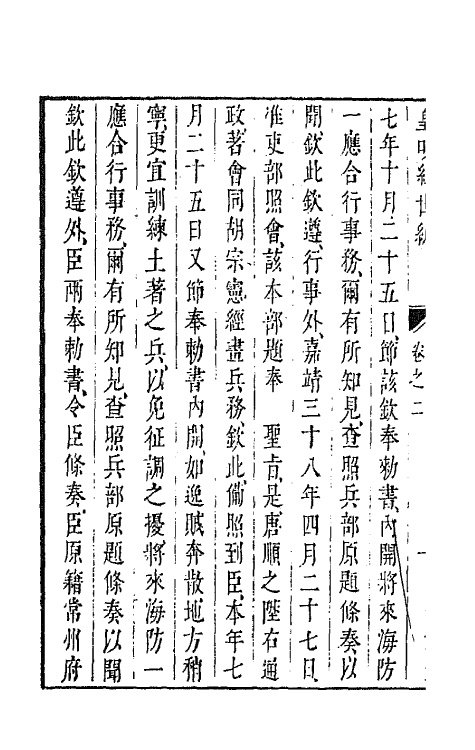 皇明經世編
卷之二
七年十月二十五日、節該欽奉勅書、內開將來海防
一應合行事務、爾有所知見、查照兵部原題條奏、以
聞、欽此欽遵、行事外、嘉靖三十八年四月二十七日、
准吏部照會、該本部題奉　聖旨、是、唐順之陞右通
政著會同胡宗憲經畫兵務、欽此、備照到臣、本年七
月二十五日又節奉勅書內開、如逆賊奔散、地方稍
寧、更宜訓練土著之兵、以免征調之擾將來海防一
應合行事務、爾有所知見、查照兵部原題條奏以聞
欽此欽遵外、臣兩奉勅書、令臣條奏、臣原籍常州府